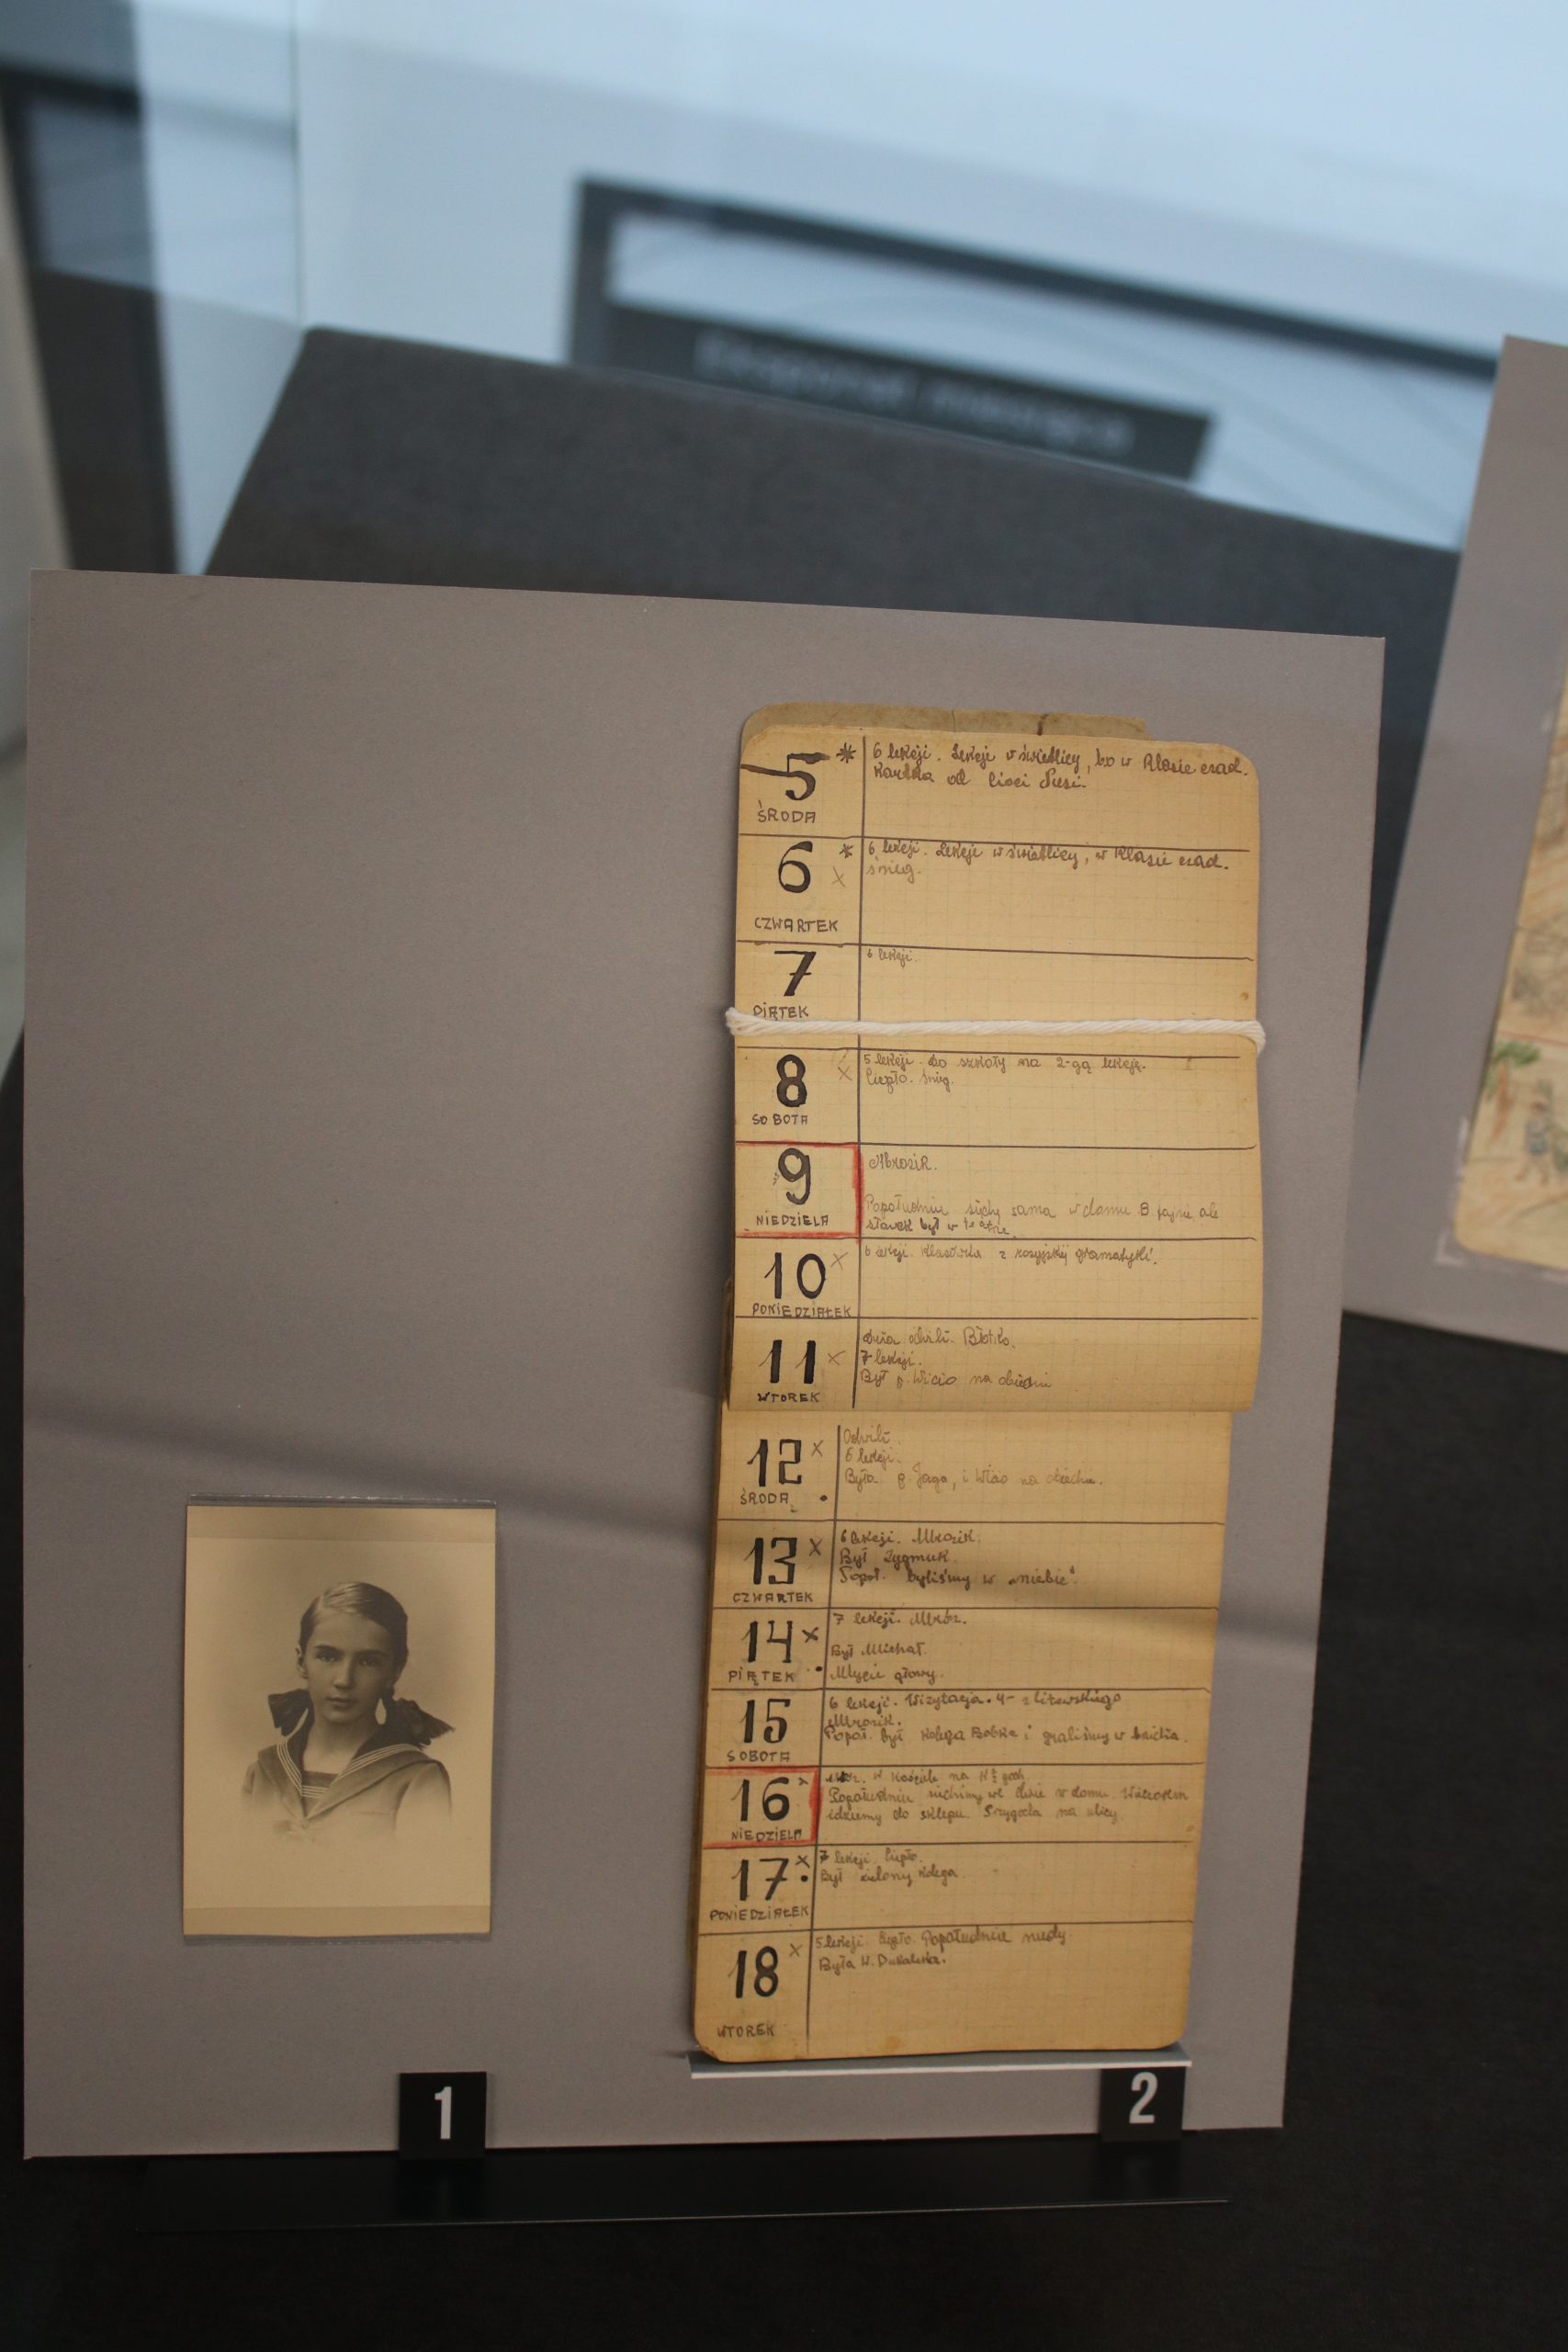 5
ŚRODA
6 lekcji. Lekcje w świetlicy, bo w klasie czad.
Kartka od cioci
6
CZWARTEK
6 lekcji. Lekcje w świetlicy, w klasie czad.
śnieg.
7
PIĄTEK
6 lekcji.
8
SOBOTA
5 lekcji. Do szkoły na 2-gą lekcję.
Ciepło. śnieg.
9
NIEDZIELA
Mrozik.
Popołudniu siedzę sama w domu fajnie, ale
Sławek był w teatrze.
10
PONIEDZIAŁEK
6 lekcji. Klasówka z rosyjskiej gramatyki.
11
WTOREK
Duża odwilż. Błotko.
7 lekcji.
Był p. Wicio na obiedzie
12
ŚRODA
Odwilż.
6 lekcji.
Była p. Jaga, i Wicio na obiedzie.
13
CZWARTEK
6 lekcji. Mrozik.
Był Zygmuk.
Popoł. byliśmy w "niebie".
14
PIĄTEK
7 lekcji. Mróz.
Był Michał.
Mycie głowy.
15
SOBOTA
6 lekcji. Wizytacja. 4- z litewskiego
Mrozik.
Popoł. był kolega Bobka i graliśmy w
16
NIEDZIELA
W kościele na
Popołudniu siedzimy we dwie w domu. Wieczorem
idziemy do sklepu. Przygoda na ulicy.
17
PONIEDZIAŁEK
7 lekcji. Ciepło.
Był zielony kolega.
18
WTOREK
5 lekcji. Ciepło. Popołudniu nudy.
Była W.
1
2